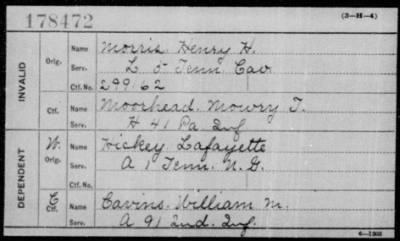 178472
(3-H-4)
INVALID
Orig.
Name Morris Henry H.
Serv. L 5 Tenn Cav.
Ctf. No. 299162
Ctf.
Name Moorhead, Mowry T.
Serv. H 41 Pa Inf
DEPENDENT
W. Orig.
Name Hickey Lafayette
Serv. A 1 Tenn. N. G.
Ctf. No.
C Ctf.
Name Cavins, William M.
Serv. A 91 Ind. Inf.
6-1908